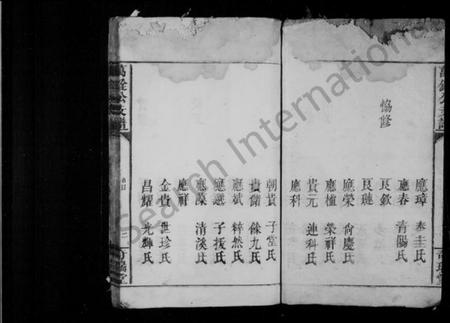 協修
應璋 奉圭氏
應春 青陽氏
良欽
良璉
應榮 尙慶氏
應植 榮祥氏
貴元 連科氏
應科
朝貴 子堂氏
貴蘭 餘九氏
應斌 粹然氏
應選 子援氏
應藻 清溪氏
應祥
金貴 世珍氏
昌耀 光輝氏
Search International